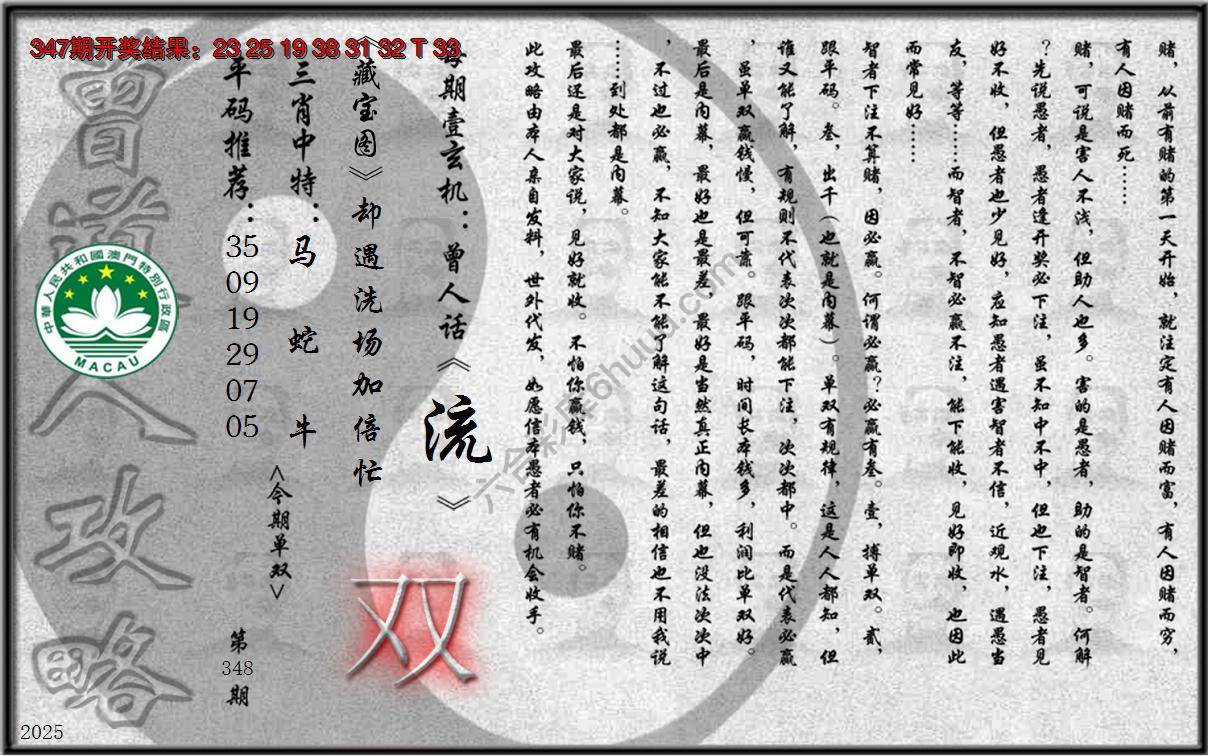 347期开奖结果：23 25 19 38 31 32 T 33
赌，从前有赌的第一天开始，就注定有人因赌而富，有人因赌而穷，
有人因赌而死……
赌，可说是害人不浅，但助人也多。害的是愚者，助的是智者。何解
？先说愚者，愚者逢开奖必下注，虽不知中不中，但也下注，愚者见
好不收，但愚者也少见好，应知愚者遇害智者不信，近观水，遇愚当
友，等等……而智者，不智必赢不注，能下能收，见好即收，也因此
而常见好……
智者下注不算赌，因必赢。何谓必赢？必赢有叁。壹，搏单双。贰，
跟平码。叁，出千（也就是内幕）。单双有规律，这是人人都知，但
谁又能了解，有规则不代表次次都能下注，次次都中。而是代表必赢
，虽单双赢钱慢，但可靠。跟平码，时间长本钱多，利润比单双好。
最后是内幕，最好也是最差，最好是当然真正内幕，但也没法次次中
，不过也必赢，不知大家能不能了解这句话，最差的相信也不用我说
……到处都是内幕。
最后还是对大家说，见好就收。不怕你赢钱，只怕你不赌。
此攻略由本人亲自发料，世外代发，如愿信本愚者必有机会收手。
每期壹玄机：曾人话《流》
《藏宝图》却遇洗场加倍忙
三肖中特：马 蛇 牛
平码推荐：35 09 19 29 07 05
<今期单双>
双
第348期
曾道人攻略
中華人民共和國澳門特別行政區
MACAU
六合彩库6huuu.com
2025